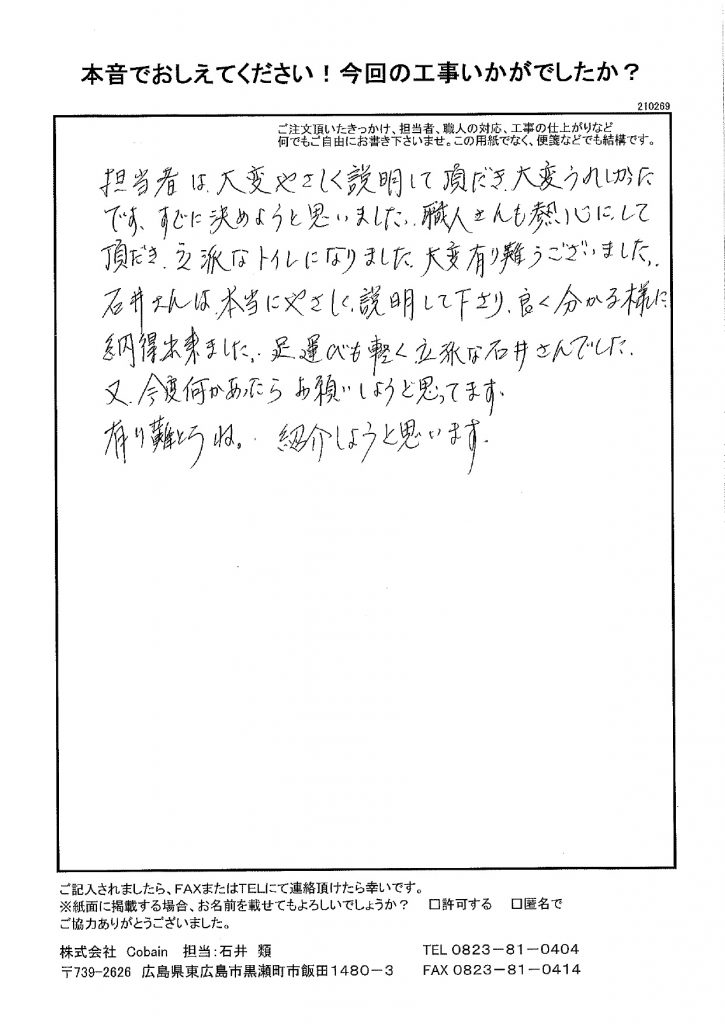 本音でおしえてください！今回の工事いかがでしたか？
210269
ご注文頂いたきっかけ、担当者、職人の対応、工事の仕上がりなど
何でもご自由にお書き下さいませ。この用紙でなく、便箋などでも結構です。
担当者は、大変やさしく説明して頂だき、大変うれしかった
です、すぐに決めようと思いました。職人さんも熱心にして
頂だき、立派なトイレになりました。大変有り難うございました。
石井さんは、本当にやさしく、説明して下さり、良く分かる様に
納得出来ました。足運びも軽く立派な石井さんでした。
又、今度何かあったらお願いしようと思ってます。
有り難とうね。紹介しようと思います。
ご記入されましたら、FAXまたはTELにて連絡頂けたら幸いです。
※紙面に掲載する場合、お名前を載せてもよろしいでしょうか？ □許可する □匿名で
ご協力ありがとうございました。
株式会社 Cobain 担当：石井 類 TEL 0823－81－0404
〒739-2626 広島県東広島市黒瀬町市飯田1480－3 FAX 0823－81－0414